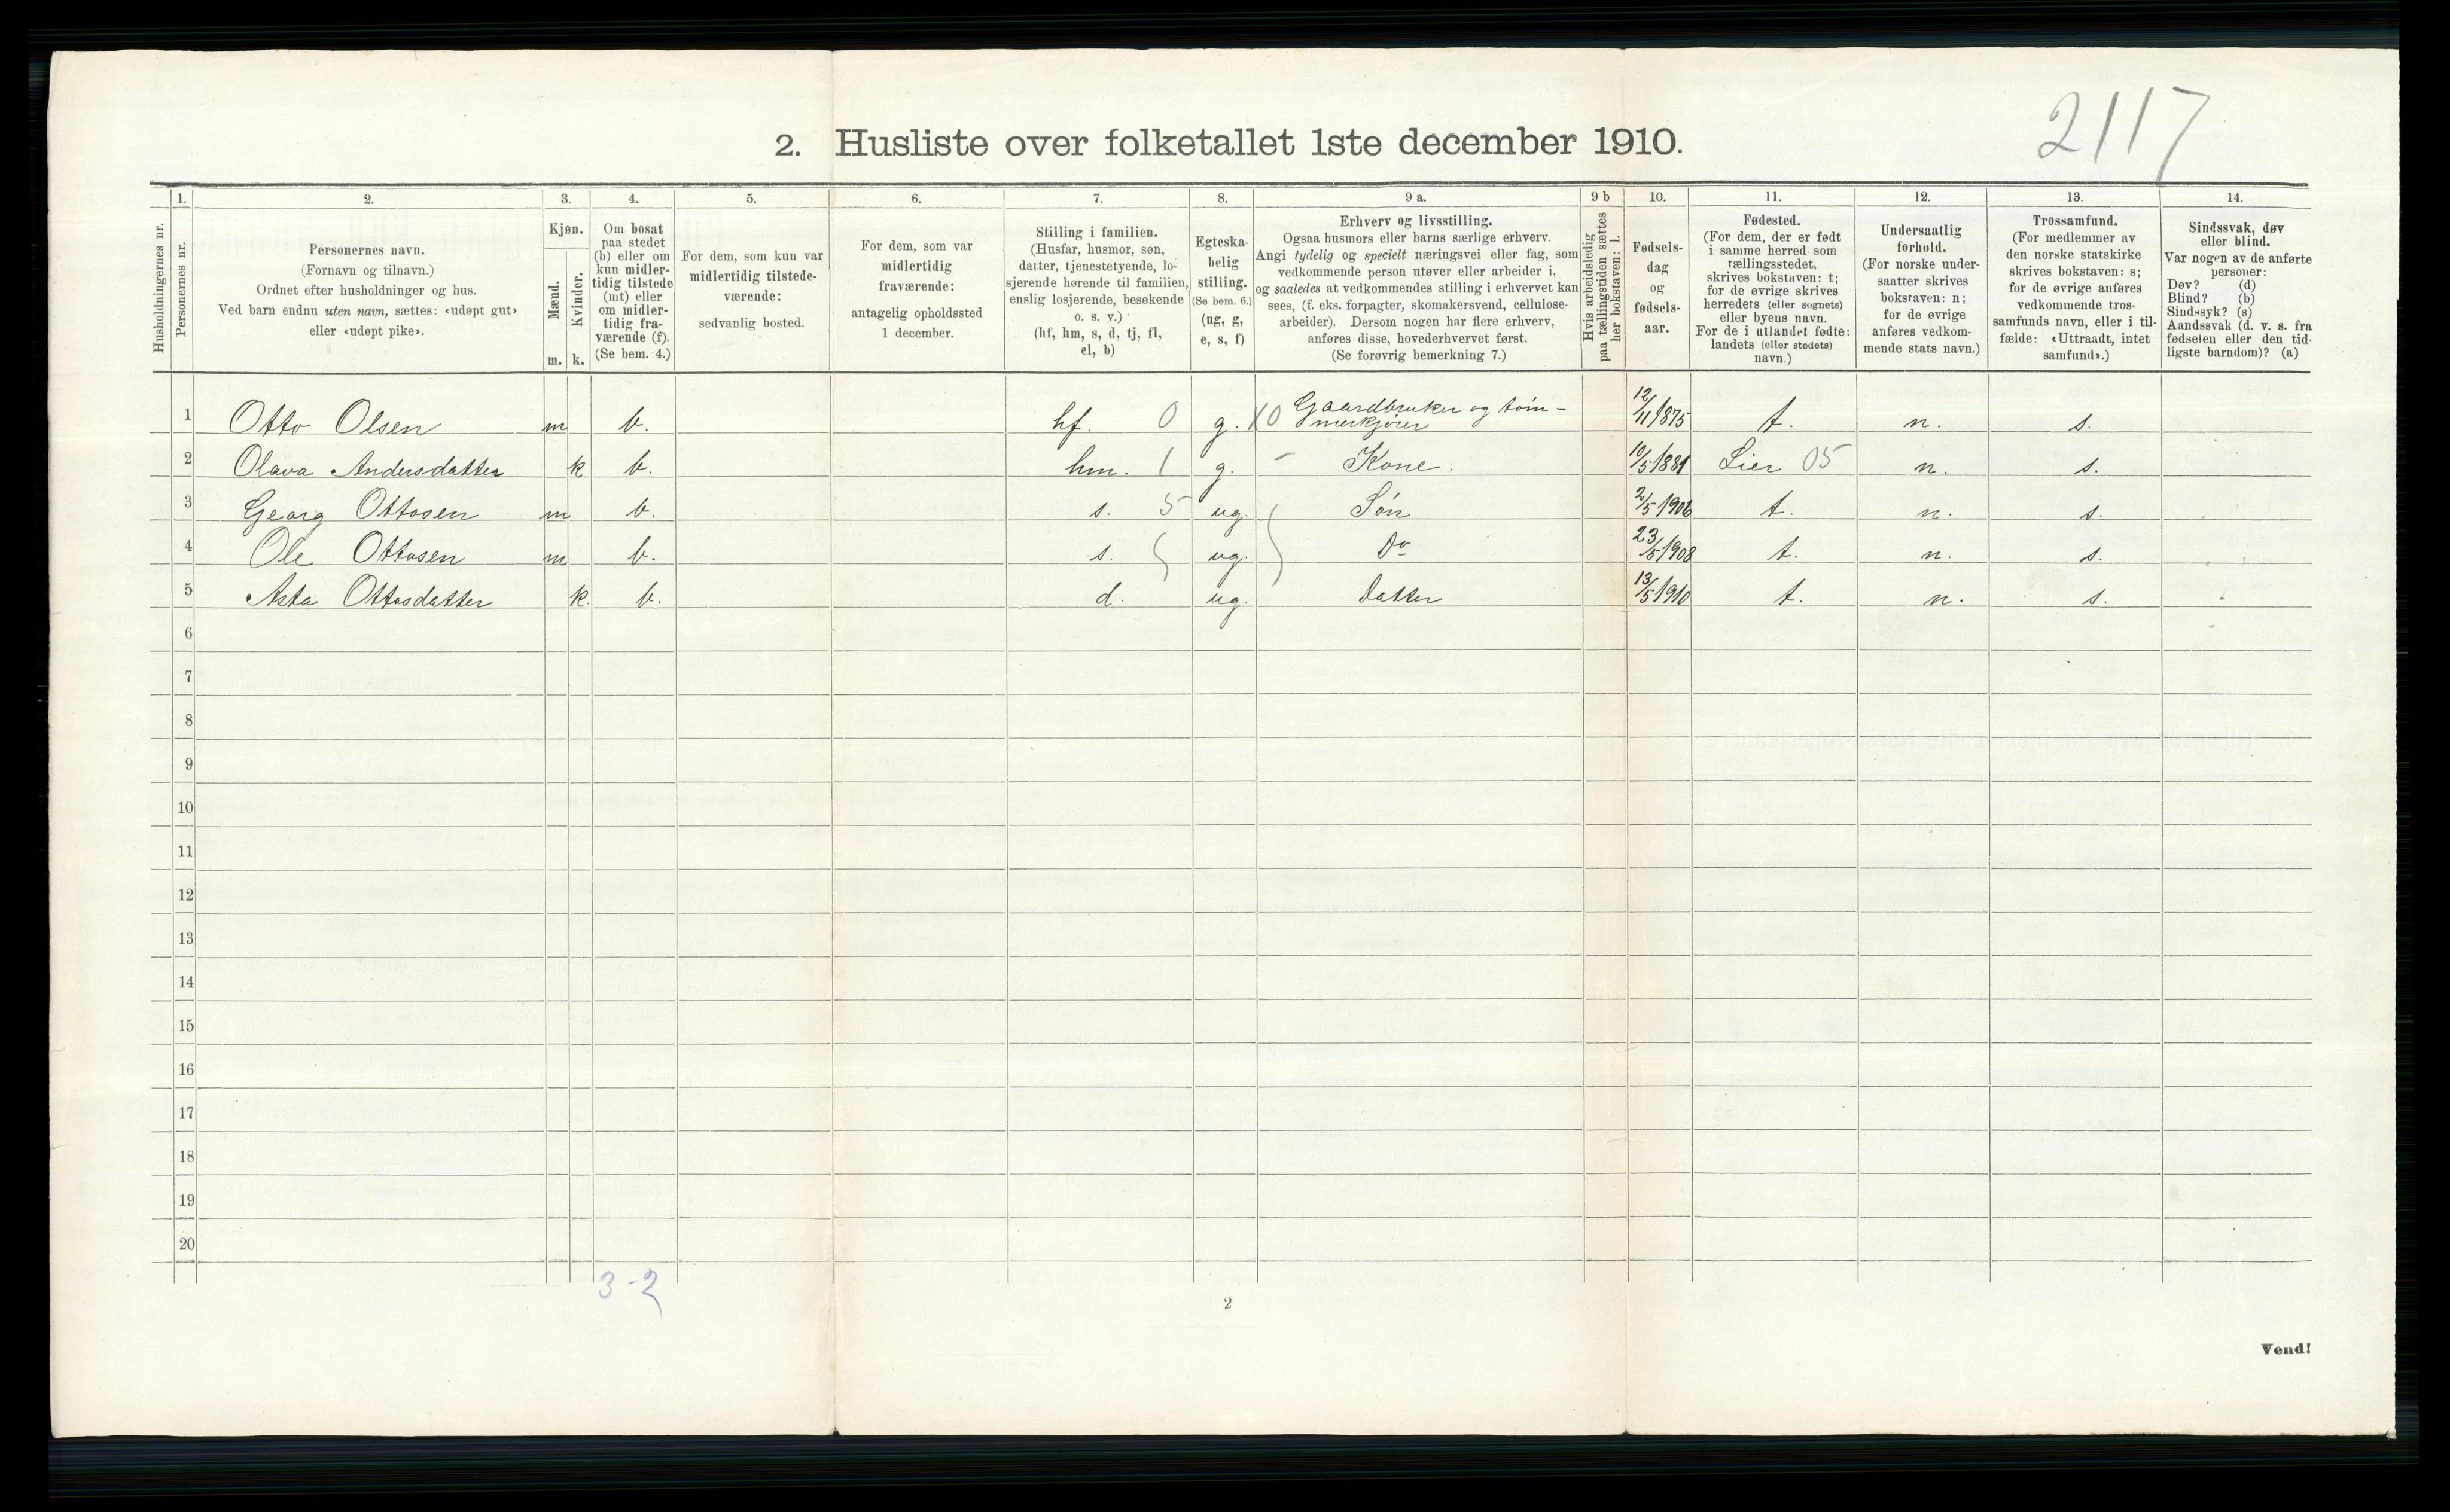 2117
2. Husliste over folketallet 1ste december 1910.
Husholdningernes nr.
1. Personernes nr.
2. Personernes navn.
(Fornavn og tilnavn.)
Ordnet efter husholdninger og hus.
Ved barn endnu uten navn, sættes: «udøpt gut»
eller «udøpt pike».
3. Kjøn.
Mænd. m.
Kvinder. k.
4. Om bosat
paa stedet
(b) eller om
kun midler-
tidig tilstede
(mt) eller
om midler-
tidig fra-
værende (f).
(Se bem. 4.)
5. For dem, som kun var
midlertidig tilstede-
værende:
sedvanlig bosted.
6. For dem, som var
midlertidig
fraværende:
antagelig opholdssted
1 december.
7. Stilling i familien.
(Husfar, husmor, søn,
datter, tjenestetyende, lo-
sjerende hørende til familien,
enslig losjerende, besøkende
o. s. v.)
(hf, hm, s, d, tj, fl,
el, b)
8. Egteska-
belig
stilling.
(Se bem. 6.)
(ug, g,
e, s, f)
9 a. Erhverv og livsstilling.
Ogsaa husmors eller barns særlige erhverv.
Angi tydelig og specielt næringsvei eller fag, som
vedkommende person utøver eller arbeider i,
og saaledes at vedkommendes stilling i erhvervet kan
sees, (f. eks. forpagter, skomakersvend, cellulose-
arbeider). Dersom nogen har flere erhverv,
anføres disse, hovederhvervet først.
(Se forøvrig bemerkning 7.)
9 b Hvis arbeidsledig
paa tællingstiden sættes
her bokstaven: l.
10. Fødsels-
dag
og
fødsels-
aar.
11. Fødested.
(For dem, der er født
i samme herred som
tællingsstedet,
skrives bokstaven: t;
for de øvrige skrives
herredets (eller sognets)
eller byens navn.
For de i utlandet fødte:
landets (eller stedets)
navn.)
12. Undersaatlig
forhold.
(For norske under-
saatter skrives
bokstaven: n;
for de øvrige
anføres vedkom-
mende stats navn.)
13. Trossamfund.
(For medlemmer av
den norske statskirke
skrives bokstaven: s;
for de øvrige anføres
vedkommende tros-
samfunds navn, eller i til-
fælde: «Uttraadt, intet
samfund».)
14. Sindssvak, døv
eller blind.
Var nogen av de anførte
personer:
Døv? (d)
Blind? (b)
Sindssyk? (s)
Aandssvak (d. v. s. fra
fødselen eller den tid-
ligste barndom)? (a)
1 Otto Olsen m b. hf. 0 g. X0 Gaardbruker og tøm-
merkjører 12/11 1875 t. n. s.
2 Olava Andersdatter k b. hm. 1 g. – Kone. 10/5 1881 Lier 05 n. s.
3 Georg Ottosen m b. s. 5 ug. Søn 2/5 1906 t. n. s.
4 Ole Ottosen m b. s. ug. Do 23/5 1908 t. n. s.
5 Asta Ottosdatter k. b. d. ug. Datter 13/5 1910 t. n. s.
6
7
8
9
10
11
12
13
14
15
16
17
18
19
20
3-2
2
Vend!